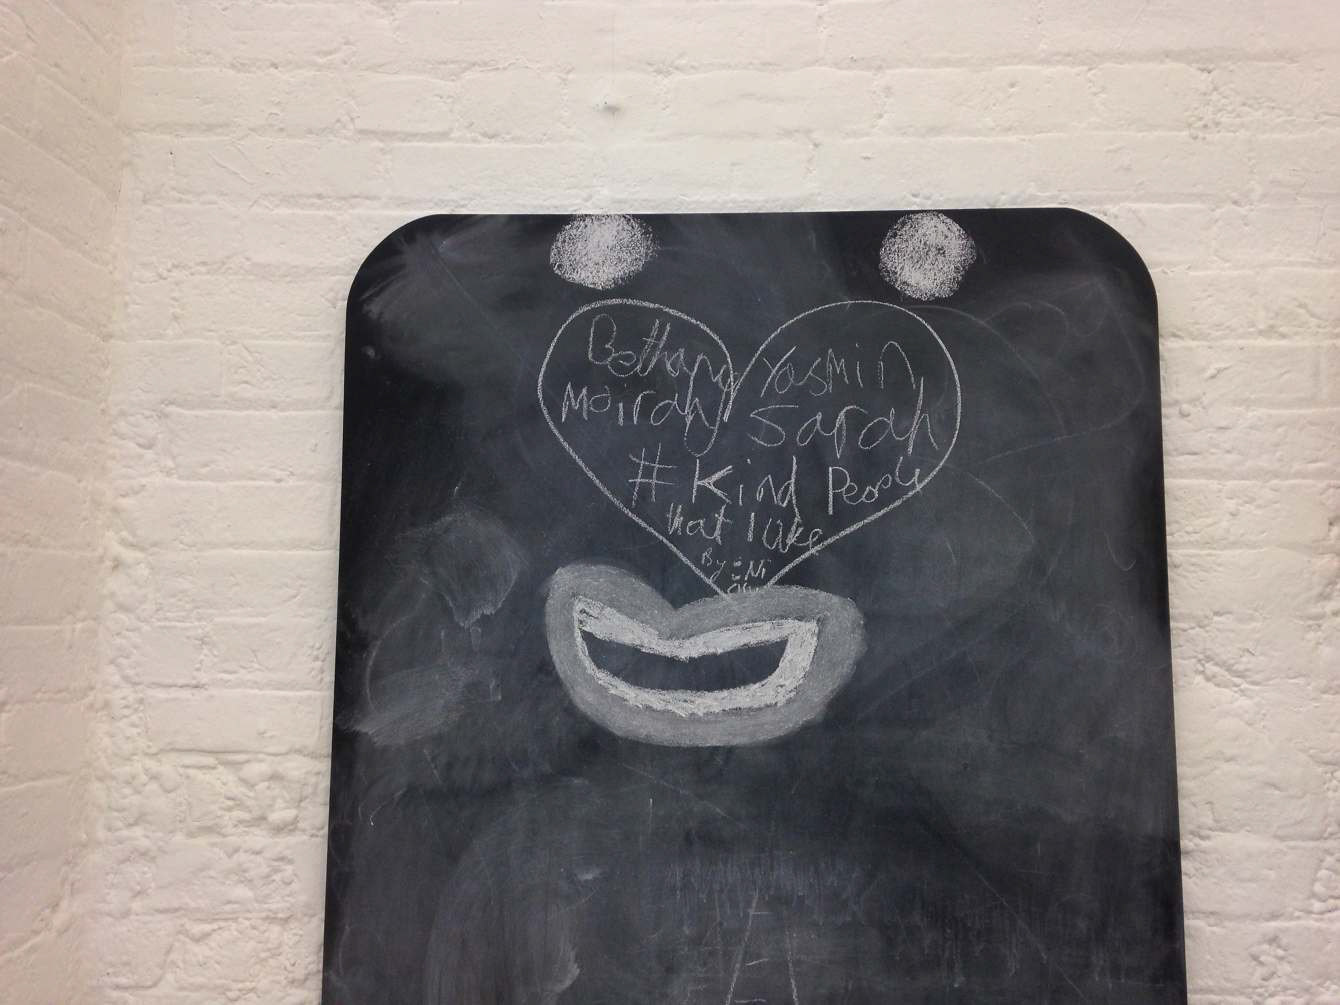 Bethany Yasmin
Moirah Sarah
# Kind People
that I like
By